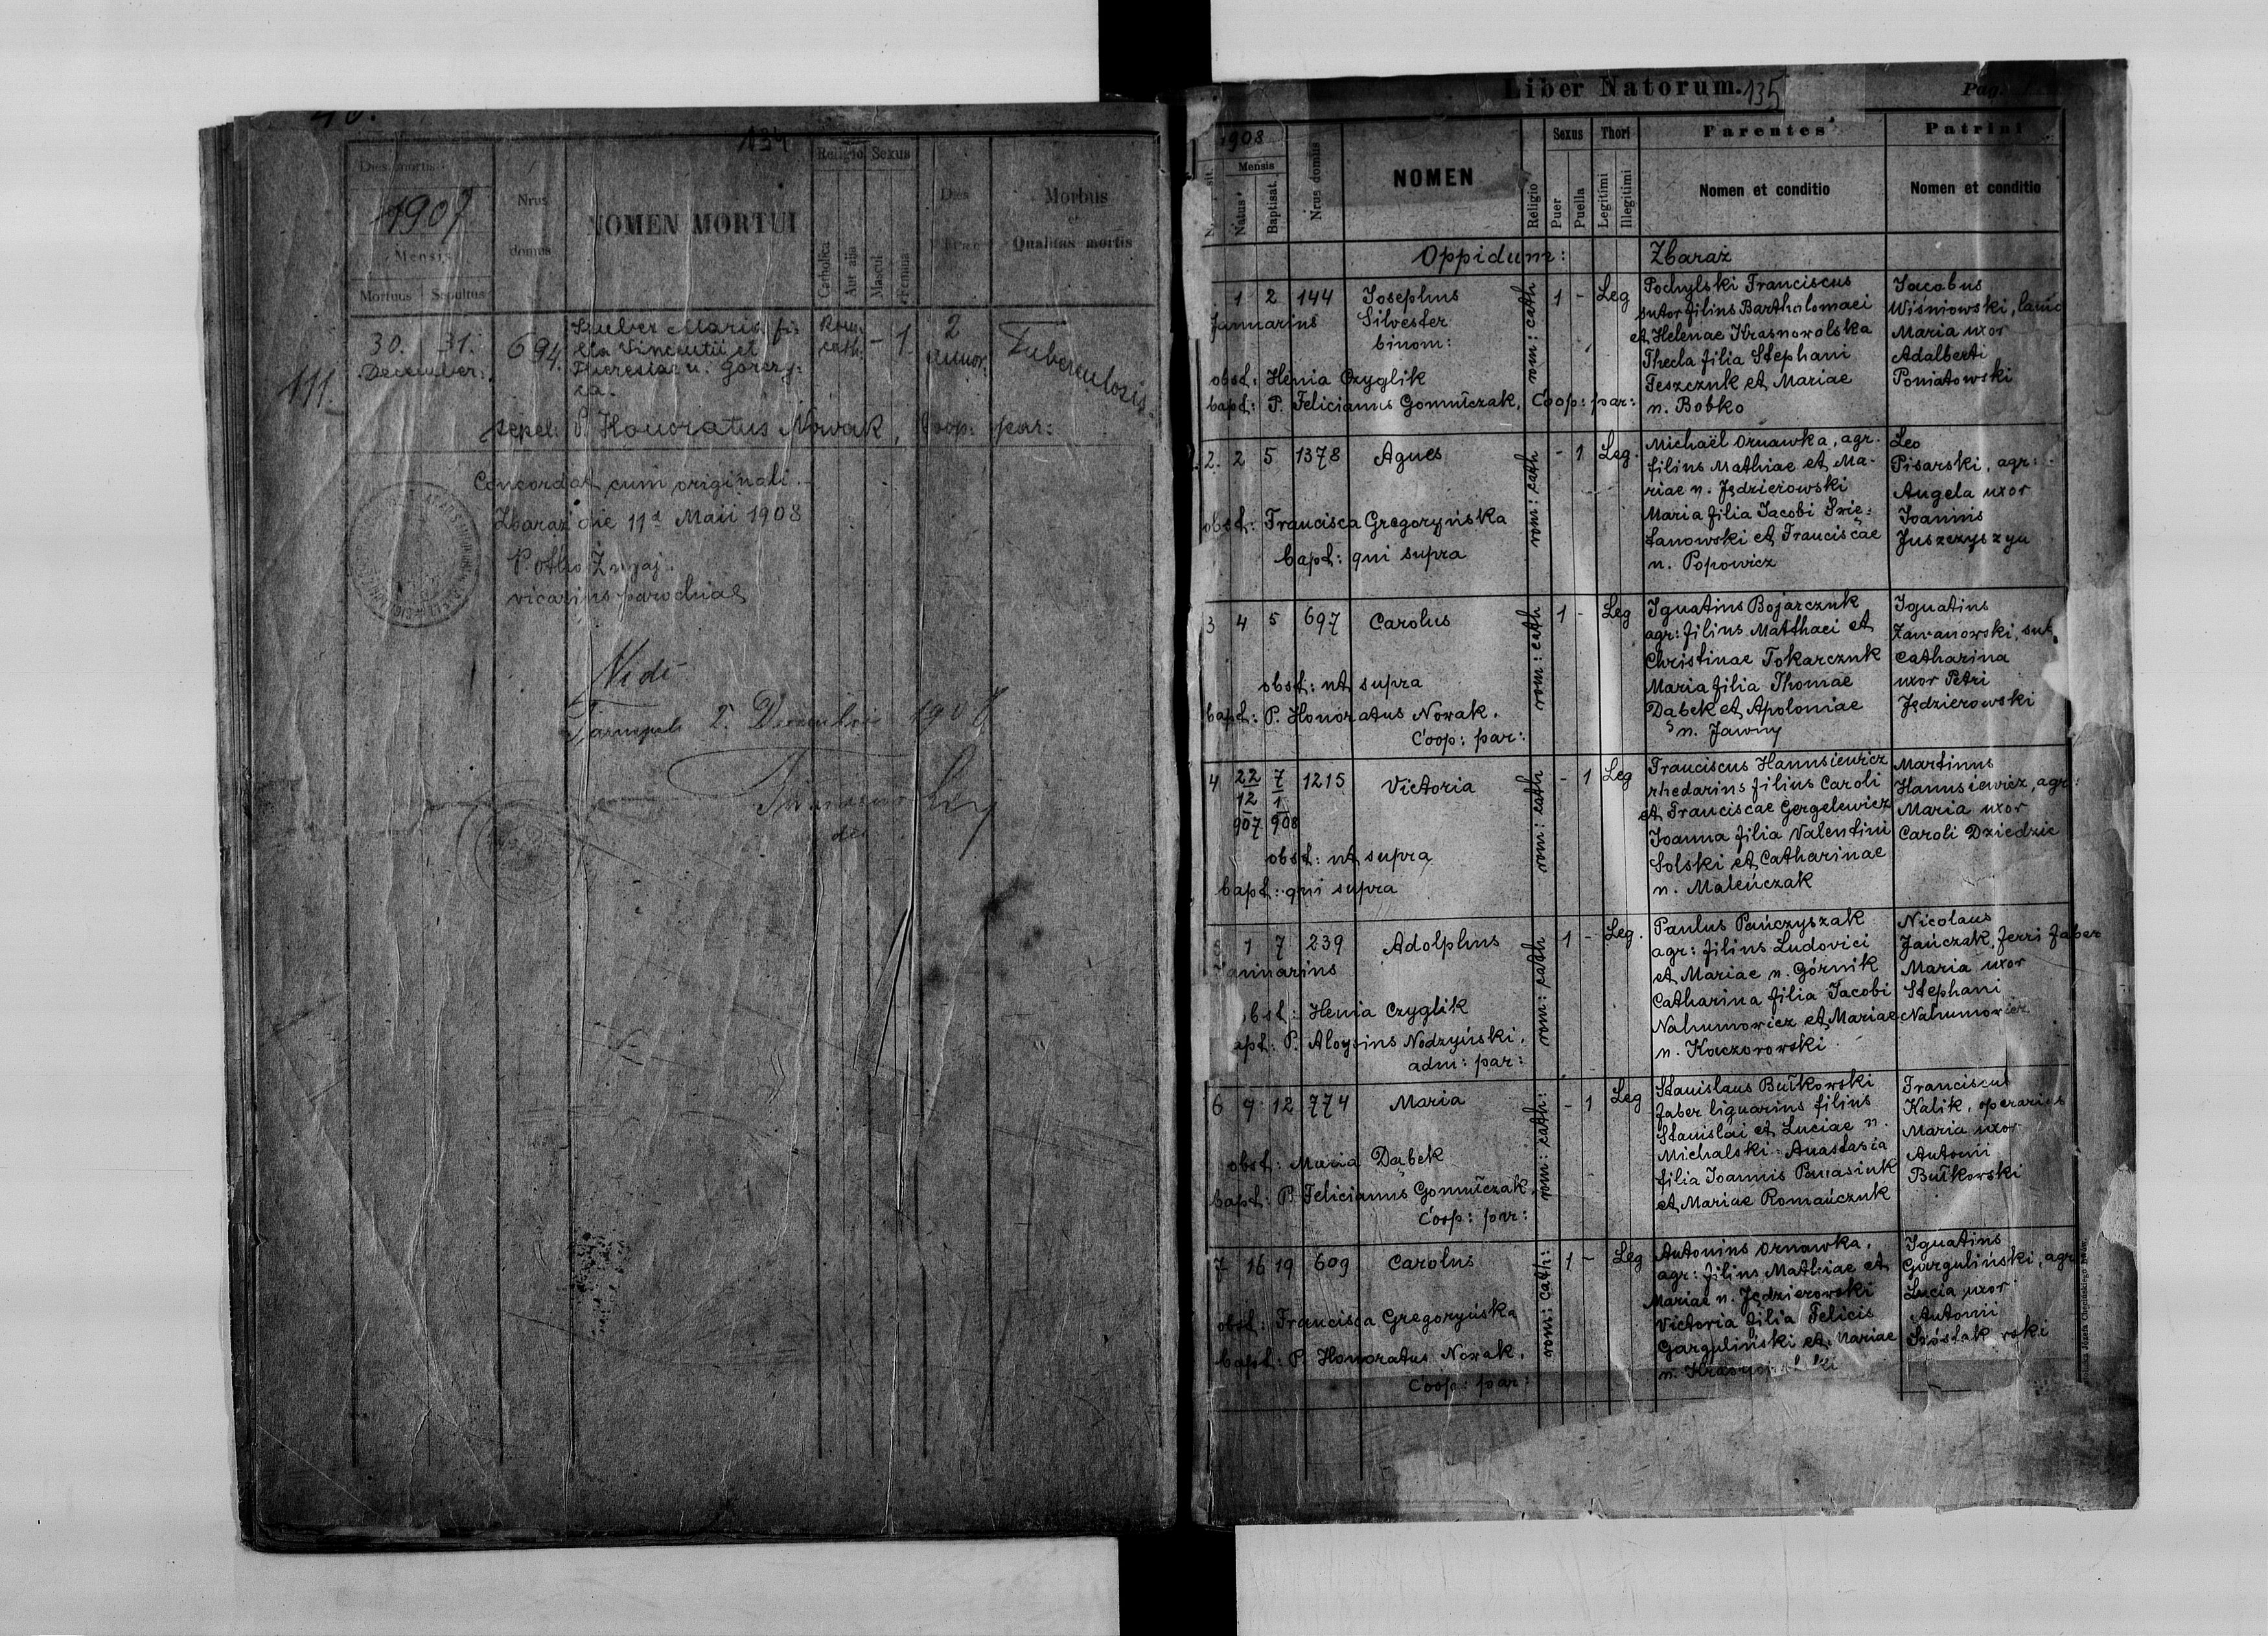 134
Dies mortis
1907
Mensis
Mortuus Sepultus
Nrus domus
NOMEN MORTUI
Religio
Catholica
Aut alia
Sexus
Mascul
Femina
Dies
Morbus
et
Qualitas mortis
111.
30. 31.
December.
694.
Maria fi-
lia Vincentii et
Theresiae n. Gorczy-
ca.
Rom.
cath.
- 1
2
annor.
Tuberculosis.
sepel: P. Honoratus Nowak, Coop: par:
Concordat cum originali.
Zbaraż die 11a Maii 1908
P. Otho
vicarius parochiae
Vidi
Tarnopol 2. Decembris 1908
Liber Natorum. 135 Pag.
1908
Mensis
Natus
Baptisat.
Nrus domus
NOMEN
Religio
Sexus
Puer
Puella
Thori
Legitimi
Illegitimi
Parentes
Nomen et conditio
Patrini
Nomen et conditio
Oppidum: Zbaraż
1 2 144 Josephus
Januarius Silvester
binom:
obst: Henia Czyglik
bapt: P. Felicianus Gomułczak, Coop: par:
rom: cath
1 - Leg
Pochylski Franciscus
sutor filius Bartholomaei
et Helenae Krasnowolska
Thecla filia Stephani
Teszczuk et Mariae
n. Bobko
Jacobus
Wiśniowski, lanio
Maria uxor
Adalberti
Poniatowski
2. 2 5 1378 Agnes
obst: Francisca Gregoryńska
bapt: qui supra
rom: cath
- 1 Leg.
Michaël Ornawka, agr.
filius Mathiae et Ma-
riae n. Jędzierowski
Maria filia Jacobi Świę-
tanowski et Franciscae
n. Popowicz
Leo
Pisarski, agr:
Angela uxor
Joannis
Juszczyszyn
3 4 5 697 Carolus
obst: ut supra
bapt: P. Honoratus Nowak.
Coop: par:
rom: cath
1 - Leg
Ignatius Bojarczuk
agr: filius Matthaei et
Christinae Tokarczuk
Maria filia Thomae
Dąbek et Apoloniae
n. Jawny
Ignatius
Zawanowski, sut.
Catharina
uxor Petri
Jędzierowski
4 22/12 907 7/1 908 1215 Victoria
obst: ut supra
bapt: qui supra
rom: cath
- 1 Leg
Franciscus Hannsiewicz
rhedarius filius Caroli
et Franciscae Gergelewicz
Joanna filia Valentini
Solski et Catharinae
n. Maleńczak
Martinus
Hannsiewicz, agr:
Maria uxor
Caroli Dziedzic
5 1 7 239 Adolphus
Januarius
obst: Henia Czyglik
bapt: P. Aloysius Nodzyński,
adm: par:
rom: cath
1 - Leg.
Paulus Pańczyszak
agr: filius Ludovici
et Mariae n. Górnik
Catharina filia Jacobi
Nahumowicz et Mariae
n. Kaczorowski
Nicolaus
Jańczak, ferri faber
Maria uxor
Stephani
Nahumowicz
6 9 12 774 Maria
obst: Maria Dąbek
bapt: P. Felicianus Gomułczak,
Coop: par:
rom: cath:
- 1 Leg
Stanislaus Bułkowski
faber lignarius filius
Stanislai et Luciae n.
Michalski. Anastasia
filia Joannis Panasiuk
et Mariae Romańczuk
Franciscus
Kalik, operarius
Maria uxor
Antonii
Bułkowski
7 16 19 609 Carolus
obst: Francisca Gregoryńska
bapt: P. Honoratus Nowak,
Coop: par:
rom: cath:
1 - Leg
Antonius Ornawka,
agr: filius Mathiae et
Mariae n. Jędzierowski
Victoria filia Felicis
Garguliński et Mariae
n.
Ignatius
Garguliński, agr
Lucia uxor
Antonii